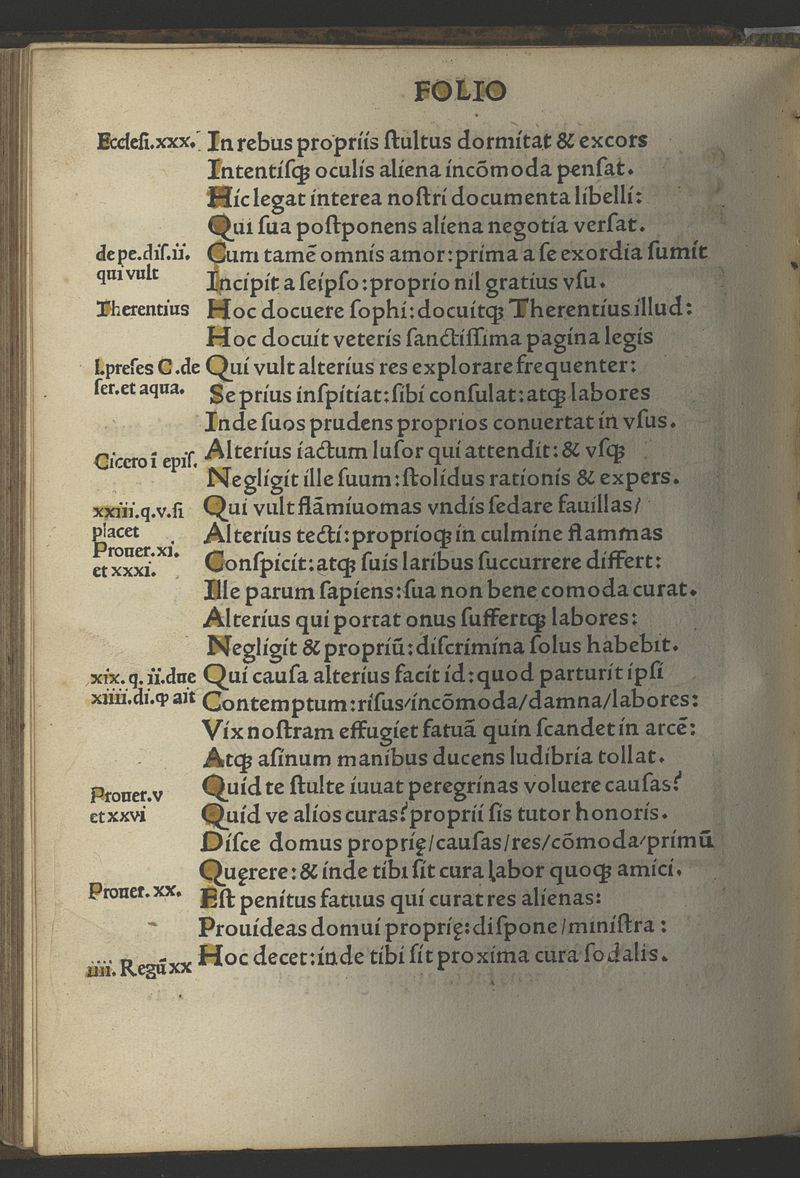 FOLIO
Ecclesi.xxx. In rebus propriis ſtultus dormitat & excors
Intentiſqꝫ oculis aliena incõmoda penſat.
Hic legat interea noſtri documenta libelli:
Qui ſua poſtponens aliena negotia verſat.
de pe.diſ.ii. Cum tamẽ omnis amor: prima a ſe exordia ſumit
qui vult Incipit a ſeipſo: proprio nil gratius vſu.
Therentius Hoc docuere ſophi: docuitqꝫ Therentius illud:
Hoc docuit veteris ſanctiſſima pagina legis
l.preſes C.de Qui vult alterius res explorare frequenter:
ſer.et aqua. Se prius inſpitiat: ſibi conſulat: atqꝫ labores
Inde ſuos prudens proprios conuertat in vſus.
Cicero ĩ epiſ. Alterius iactum luſor qui attendit: & vſqꝫ
Negligit ille ſuum: ſtolidus rationis & expers.
xxiii.q.v.ſi Qui vult flãmiuomas vndis ſedare fauillas/
placet Alterius tecti: proprioqꝫ in culmine flammas
Prouer.xi. Conſpicit: atqꝫ ſuis laribus ſuccurrere differt:
et xxxi. Ille parum ſapiens: ſua non bene comoda curat.
Alterius qui portat onus ſuffertqꝫ labores:
Negligit & propriũ: diſcrimina ſolus habebit.
xix. q. ii.due Qui cauſa alterius facit id: quod parturit ipſi
xiiii.di.ꝙ ait Contemptum: riſus/incõmoda/damna/labores:
Vix noſtram effugiet fatuã quin ſcandet in arcẽ:
Atqꝫ aſinum manibus ducens ludibria tollat.
Quid te ſtulte iuuat peregrinas voluere cauſas?
Prouer.v
et xxvi Quid ve alios curas? proprii ſis tutor honoris.
Diſce domus proprię/cauſas/res/cõmoda/primũ
Quęrere: & inde tibi ſit cura labor quoqꝫ amici.
Prouer. xx. Eſt penitus fatuus qui curat res alienas:
Prouideas domui proprię: diſpone/miniſtra:
iiii. Regũ xx Hoc decet: inde tibi ſit proxima cura ſodalis.